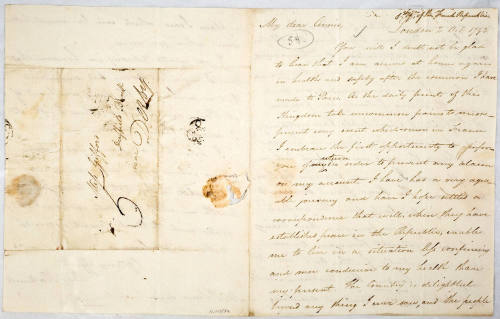 of the French Republic
London 2 Oct 1792
My dear Annie,
54
You will I doubt not be glad
to hear that I am arrived at home again
in health and safety after the common I have
made to Paris As the daily prints of this
Kingdom take uncommon pains to misre=
present every event which occurs in France
I embrace the first opportunity to
you in order to prevent any alarm
on my account. I have had a very agree
able journey and have I hope settled a
correspondence that will, when they have
established peace in the Republic, enable
me to live in a situation less confining
and more conducive to my health than
my present. The Country is delightful
beyond any thing I ever saw, and the people
Duffield Bank
near Derby